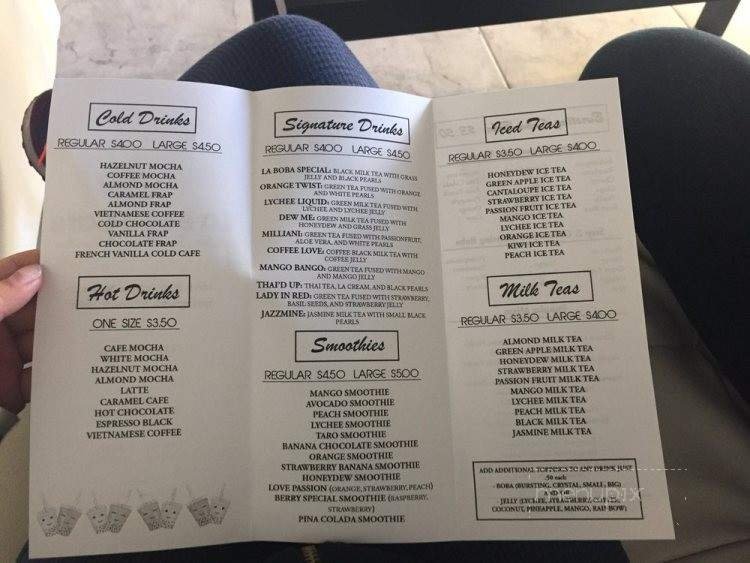 Cold Drinks
REGULAR $400 LARGE $4.50
HAZELNUT MOCHA
COFFEE MOCHA
ALMOND MOCHA
CARAMEL FRAP
ALMOND FRAP
VIETNAMESE COFFEE
COLD CHOCOLATE
VANILLA FRAP
CHOCOLATE FRAP
FRENCH VANILLA COLD CAFE
Hot Drinks
ONE SIZE $3.50
CAFE MOCHA
WHITE MOCHA
HAZELNUT MOCHA
ALMOND MOCHA
LATTE
CARAMEL CAFE
HOT CHOCOLATE
ESPRESSO BLACK
VIETNAMESE COFFEE
Signature Drinks
REGULAR $400 LARGE $4.50
LA BOBA SPECIAL: BLACK MILK TEA WITH GRASS
JELLY AND BLACK PEARLS
ORANGE TWIST: GREEN TEA FUSED WITH ORANGE
AND WHITE PEARLS
LYCHEE LIQUID: GREEN MILK TEA FUSED WITH
LYCHEE AND LYCHEE JELLY
DEW ME: GREEN MILK TEA FUSED WITH
HONEYDEW AND GRASS JELLY
MILLIANI: GREEN TEA FUSED WITH PASSIONFRUIT,
ALOE VERA, AND WHITE PEARLS
COFFEE LOVE: COFFEE BLACK MILK TEA WITH
COFFEE JELLY
MANGO BANGO: GREEN TEA FUSED WITH MANGO
AND MANGO JELLY
THAI'D UP: THAI TEA, LA CREAM, AND BLACK PEARLS
LADY IN RED: GREEN TEA FUSED WITH STRAWBERRY,
BASIL SEEDS, AND STRAWBERRY JELLY
JAZZMINE: JASMINE MILK TEA WITH SMALL BLACK
PEARLS
Smoothies
REGULAR $4.50 LARGE $500
MANGO SMOOTHIE
AVOCADO SMOOTHIE
PEACH SMOOTHIE
LYCHEE SMOOTHIE
TARO SMOOTHIE
BANANA CHOCOLATE SMOOTHIE
ORANGE SMOOTHIE
STRAWBERRY BANANA SMOOTHIE
HONEYDEW SMOOTHIE
LOVE PASSION (ORANGE, STRAWBERRY, PEACH)
BERRY SPECIAL SMOOTHIE (RASPBERRY,
STRAWBERRY)
PINA COLADA SMOOTHIE
Iced Teas
REGULAR $3.50 LARGE $400
HONEYDEW ICE TEA
GREEN APPLE ICE TEA
CANTALOUPE ICE TEA
STRAWBERRY ICE TEA
PASSION FRUIT ICE TEA
MANGO ICE TEA
LYCHEE ICE TEA
ORANGE ICE TEA
KIWI ICE TEA
PEACH ICE TEA
Milk Teas
REGULAR $3.50 LARGE $400
ALMOND MILK TEA
GREEN APPLE MILK TEA
HONEYDEW MILK TEA
STRAWBERRY MILK TEA
PASSION FRUIT MILK TEA
MANGO MILK TEA
LYCHEE MILK TEA
PEACH MILK TEA
BLACK MILK TEA
JASMINE MILK TEA
ADD ADDITIONAL TOPPINGS TO ANY DRINK JUST
.50 each
BOBA (BURSTING, CRYSTAL, SMALL, BIG)
JELLY (LYCHEE, STRAWBERRY, COFFEE,
COCONUT, PINEAPPLE, MANGO, RAINBOW)